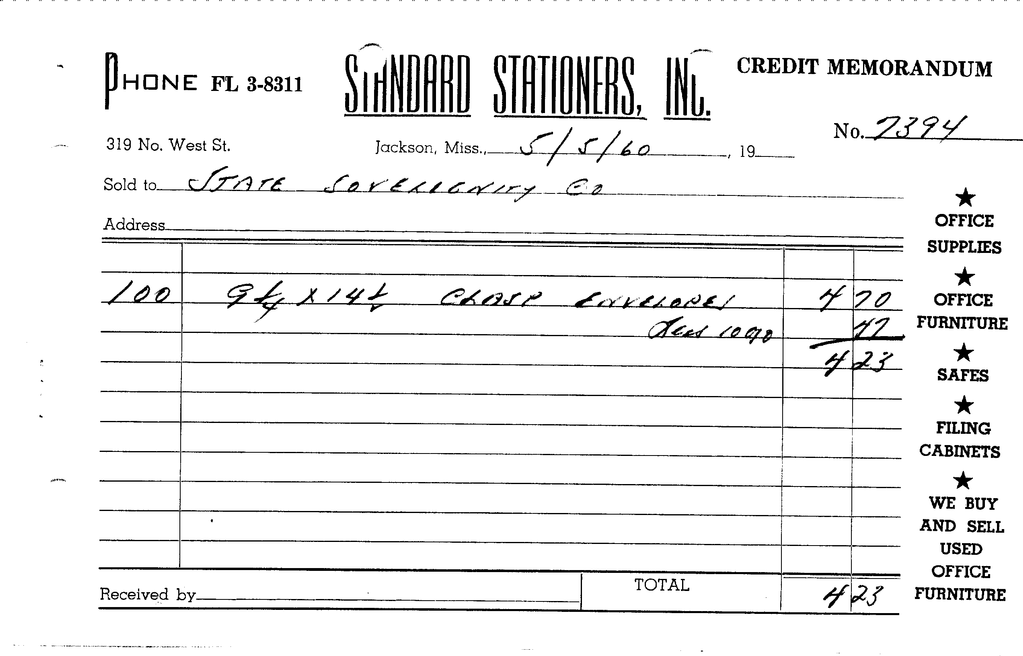 PHONE FL 3-8311
STANDARD STATIONERS, INC.
CREDIT MEMORANDUM
No. 7394
319 No. West St.
Jackson, Miss., 5/5/60, 19
Sold to STATE SOVEREIGNITY CO
Address
100 9 1/4 X 14 1/2 CLASP ENVELOPES 4 70
Less 10% 47
4 23
TOTAL 4 23
Received by
★
OFFICE
SUPPLIES
★
OFFICE
FURNITURE
★
SAFES
★
FILING
CABINETS
★
WE BUY
AND SELL
USED
OFFICE
FURNITURE